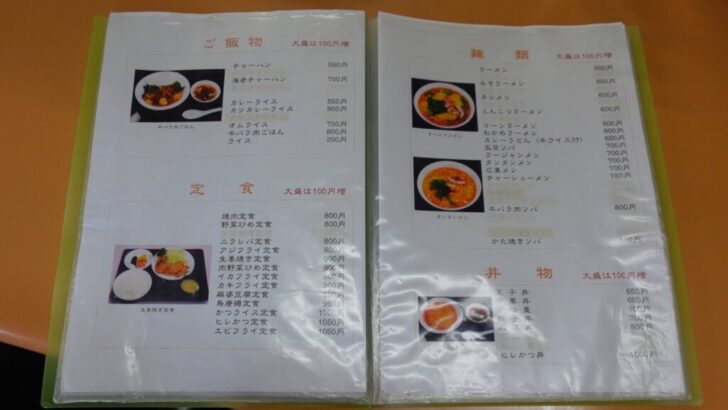 ご飯物 大盛は100円増
チャーハン 550円
海老チャーハン 700円
カレーライス 550円
カツカレーライス 800円
オムライス 700円
牛バラ肉ごはん 800円
ライス 200円
牛バラ肉ごはん
定食 大盛は100円増
焼肉定食 800円
野菜炒め定食 800円
ニラレバ定食 800円
アジフライ定食 800円
生姜焼き定食 900円
肉野菜炒め定食 900円
イカフライ定食 900円
カキフライ定食 900円
麻婆豆腐定食 950円
鳥唐揚定食 950円
かつライス定食 1000円
ヒレかつ定食 1050円
エビフライ定食 1050円
生姜焼き定食
麺類 大盛は100円増
ラーメン 500円
みそラーメン 600円
タンメン 600円
とんこつラーメン 600円
コーンラーメン 600円
わかめラーメン
カレーうどん (半ライス付) 700円
五目ソバ 700円
ラージャンメン 700円
タンタンメン 700円
広東メン 700円
チャーシューメン 750円
牛バラ肉ソバ 800円
かた焼きソバ
ラージャンメン
タンタンメン
丼物 大盛は100円増
玉子丼 650円
中華丼 650円
700円
800円
ヒレかつ丼 1000円